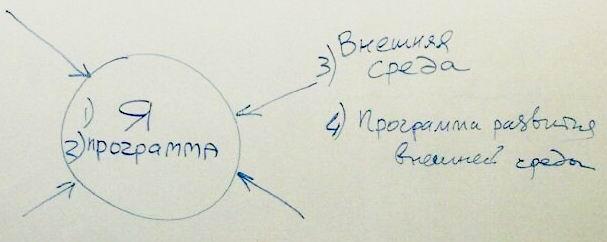 1) Я
2) программа
3) Внешняя
среда
4) Программа развития
внешней среды